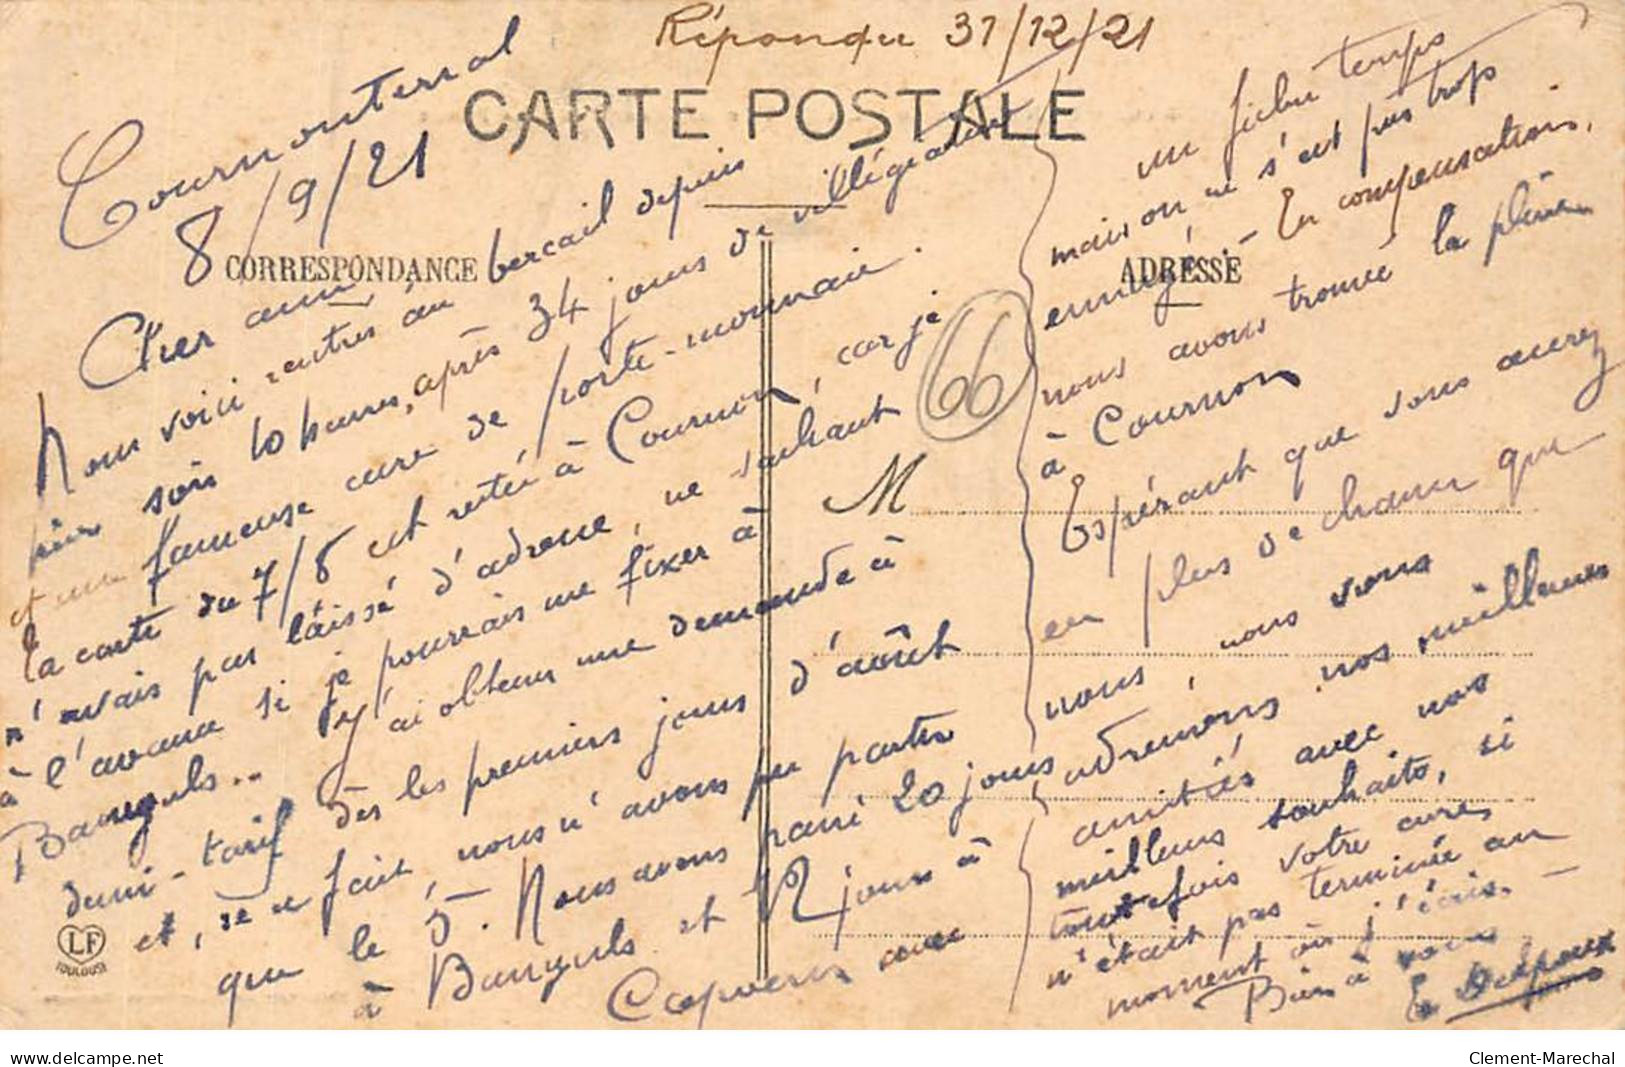 Répondu 31/12/21
CARTE POSTALE
CORRESPONDANCE
ADRESSE
Cournonterral
8/9/21
Cher ami
Nous voici rentrés au bercail depuis
hier soir 10 heures, après 34 jours de villégiature
et une fameuse cure de porte-monnaie.
La carte du 7/8 est restée à Cournon, car je
n'avais pas laissé d'adresse, ne sachant
à l'avance si je pourrais me fixer à
Banyuls.. J'ai obtenu une demande à
demi-tarif dès les premiers jours d'août
et, de ce fait, nous n'avons pu partir
que le 5. Nous avons passé 20 jours
à Banyuls et 12 jours à
Capvern avec
un fichu temps
mais on ne s'est pas trop
ennuyé. - En compensation,
nous avons trouvé la pluie
à Cournon
Espérant que vous aurez
en plus de chance que
nous, nous vous
adressons nos meilleures
amitiés avec nos
meilleurs souhaits, si
toutefois votre cure
n'était pas terminée au
moment où j'écris. -
Bien à vous
E Delpoux
66
M
LF
TOULOUSE
www.delcampe.net
Clement-Marechal